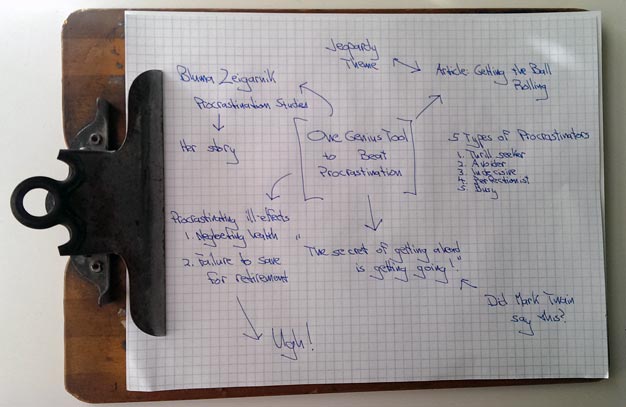 Jeopardy
Theme
Bluma Zeigarnik
Article: Getting the Ball
Rolling
Procrastination Studies
Her story
One Genius Tool
to Beat
Procrastination
5 Types of Procrastinators
1. Thrill seeker
2. Avoider
3. Indecisive
4. Perfectionist
5. Busy
Procrastinating ill-effects
1. Neglecting health
2. Failure to save
for retirement
Ugh!
"The secret of getting ahead
is getting going!"
Did Mark Twain
say this?